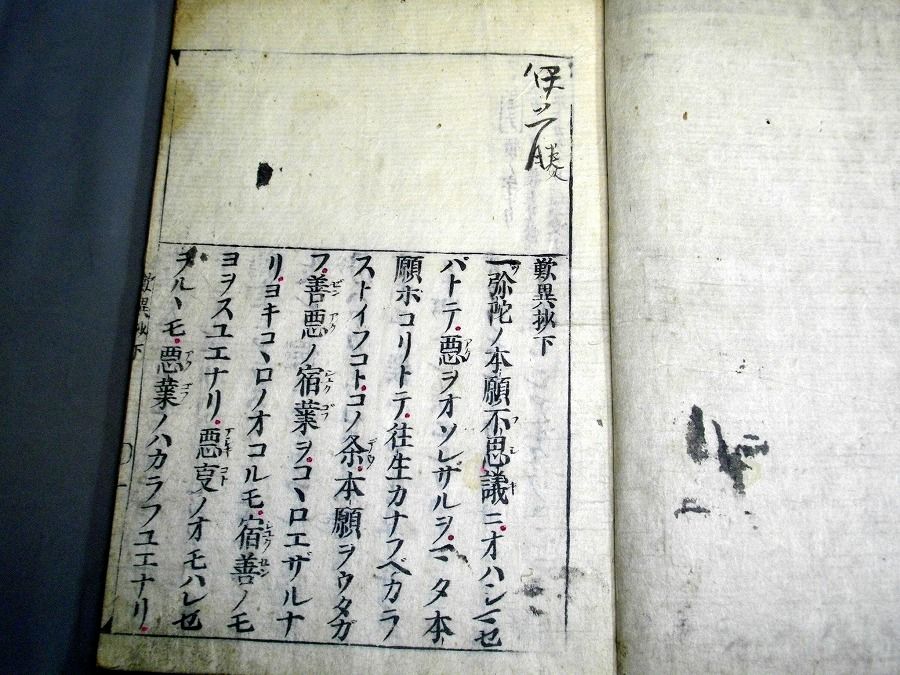 歎異抄下
一弥陀ノ本願不思議ニオハシマセ
バトテ悪ヲオソレザルヲマタ本
願ボコリトテ往生カナフベカラ
ストイフコトコノ条本願ヲウタガ
フ善悪ノ宿業ヲコヽロエザルナ
リヨキコヽロノオコルモ宿善ノモ
ヨヲスユエナリ悪叓ノオモハレセ
ラルヽモ悪業ノハカラフユエナリ
歎異抄下